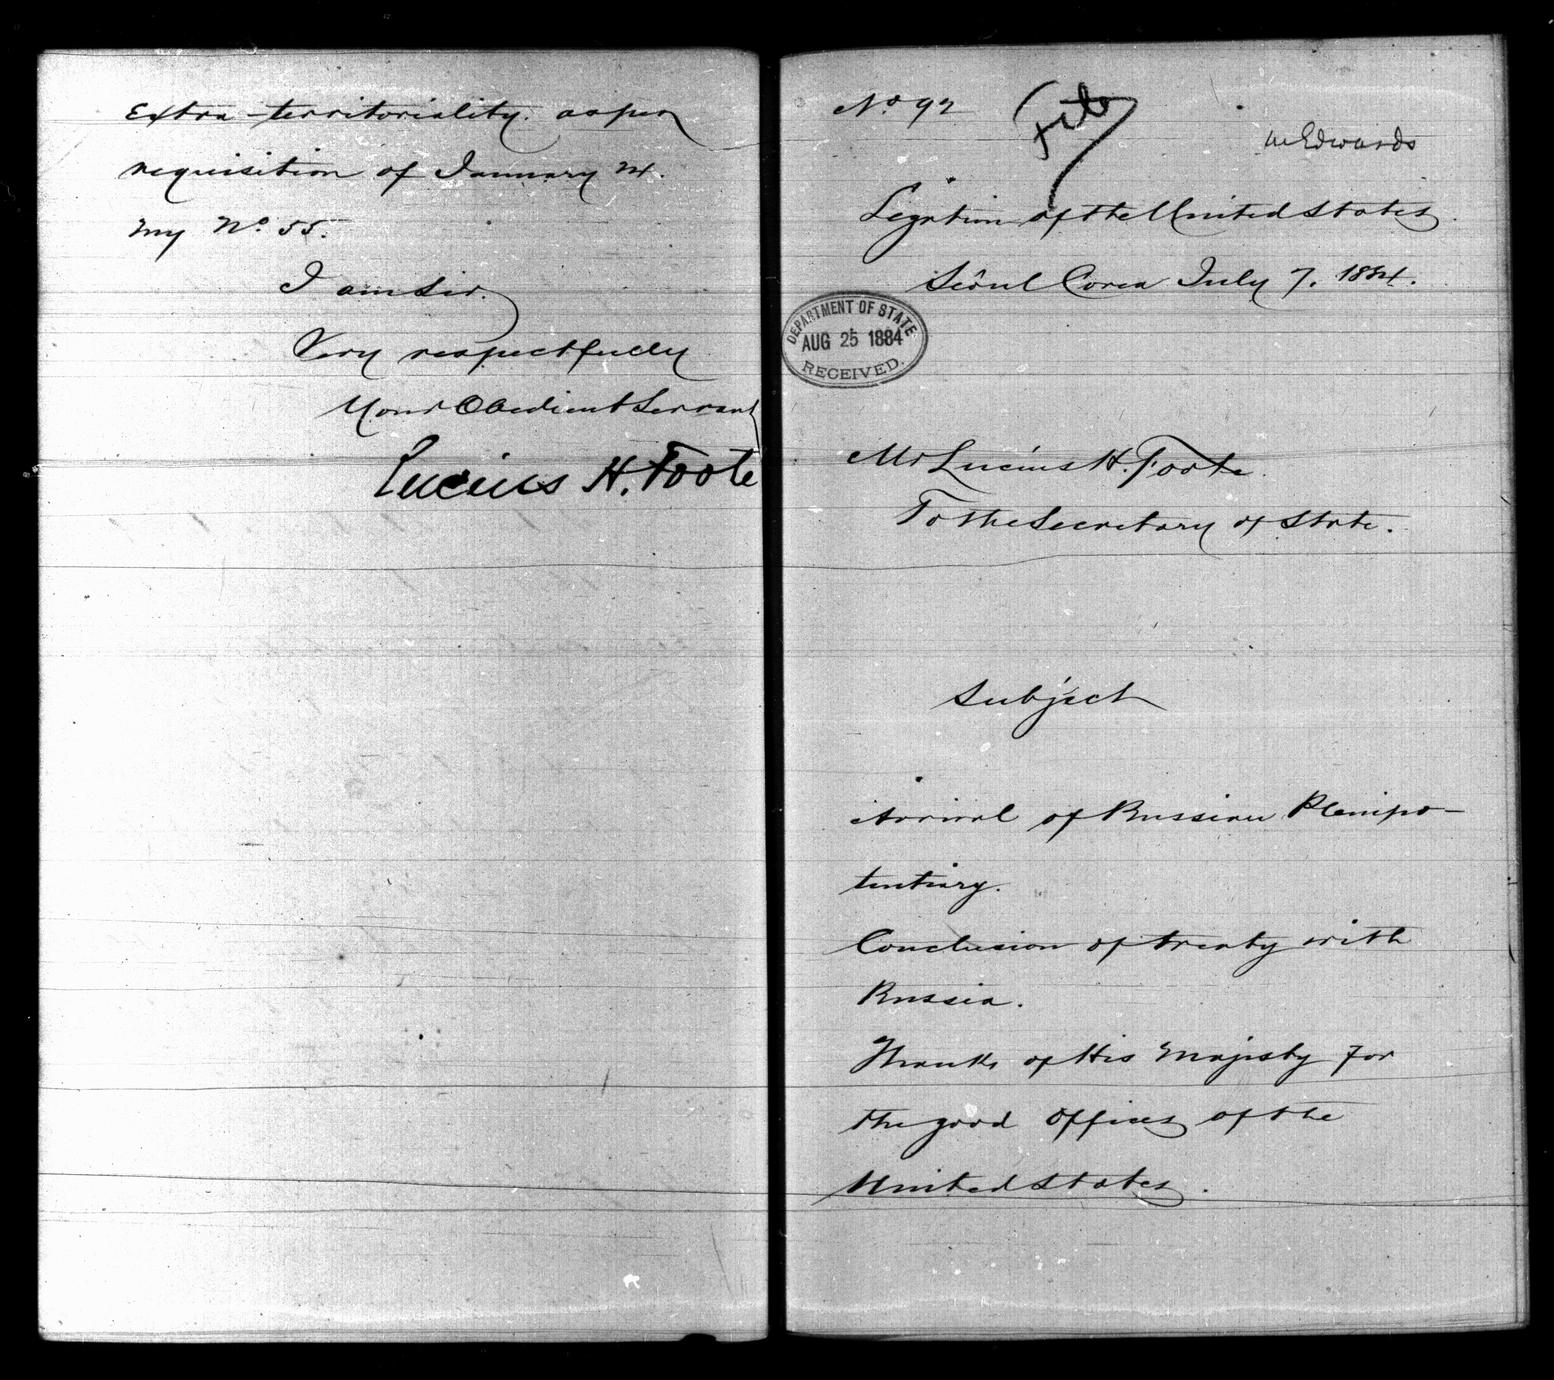 Extra-territoriality. as per
requisition of January 24.
my No. 55.
I am Sir,
Very respectfully
Your Obedient Servant
Lucius H. Foote
No 92
File
Mr Edwards
Legation of the United States
Seoul Corea July 7, 1884.
DEPARTMENT OF STATE
AUG 25 1884
RECEIVED.
Mr Lucius H. Foote
To the Secretary of State.
Subject
Arrival of Russian Plenipo-
tentiary.
Conclusion of treaty with
Russia.
Thanks of His Majesty for
the good offices of the
United States.